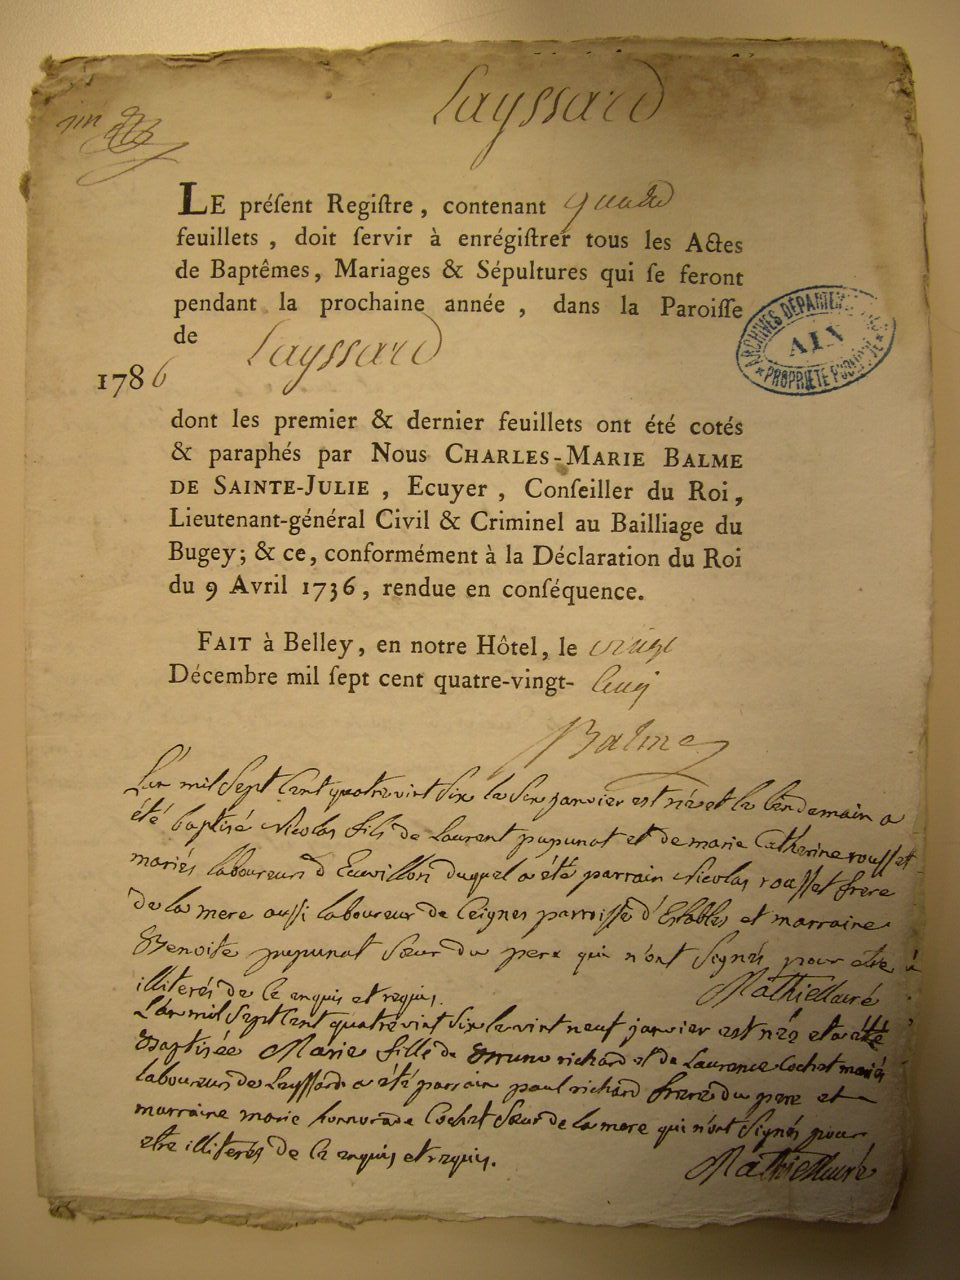 Layssard
LE préſent Regiſtre, contenant quatre
feuillets, doit ſervir à enrégiſtrer tous les Actes
de Baptêmes, Mariages & Sépultures qui ſe feront
pendant la prochaine année, dans la Paroiſſe
de Layssard
1786
dont les premier & dernier feuillets ont été cotés
& paraphés par Nous CHARLES-MARIE BALME
DE SAINTE-JULIE, Ecuyer, Conſeiller du Roi,
Lieutenant-général Civil & Criminel au Bailliage du
Bugey; & ce, conformément à la Déclaration du Roi
du 9 Avril 1736, rendue en conſéquence.
FAIT à Belley, en notre Hôtel, le vingt
Décembre mil ſept cent quatre-vingt- cinq
Balme
ARCHIVES DÉPARTEMENTALES
AIN
PROPRIÉTÉ PUBLIQUE
L'an mil sept cent quatre vint six le six janvier est né et le lendemain a
été baptisé Nicolas fils de Laurent pupunat et de marie Catherine rousset
mariés laboureurs d' duquel a été parrain Nicolas rousset frere
de la mere aussi laboureur de Ceignes parroisse d'Etables et marraine
Benoite pupunat sœur du pere qui n'ont signés pour etre
illiterés de ce enquis et requis. Mathieu curé
L'an mil sept cent quatre vint six le vint neuf janvier est née et a été
Baptisée Marie fille de Bruno richard et de Laurence Cochet mariés
laboureurs de Leyssard a été parrain paul richard frere du pere et
marraine marie honnorade Cochet sœur de la mere qui n'ont signés pour
etre illiterés de ce enquis et requis. Mathieu curé